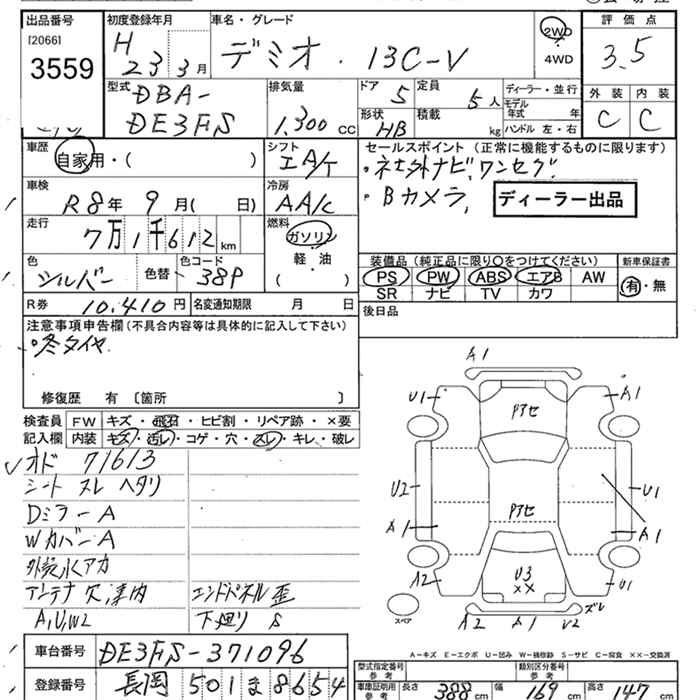 出品番号
[2066]
3559
初度登録年月
H 23 3月
車名・グレード
デミオ . 13C-V
2WD
4WD
評価点
3.5
外装 内装
C C
型式
DBA-
DE3FS
排気量
1,300 CC
ドア
5
定員
5人
形状
HB
積載
kg
ディーラー・並行
モデル年式 年
ハンドル 左・右
車歴
自家用・( )
シフト
IA/T
セールスポイント (正常に機能するものに限ります)
社外ナビ,ワンセグ,
Bカメラ,
ディーラー出品
車検
R8年 9月( 日)
冷房
AA/C
走行
7万1千612km
燃料
ガソリン
軽・油
( )
色
シルバー
色替
色コード
38P
装備品 (純正品に限り○をつけてください)
PS PW ABS エアB AW
SR ナビ TV カワ
新車保証書
有・無
R券 10,410円
名変通知期限 月 日
後日品
注意事項申告欄 (不具合内容等は具体的に記入して下さい)
冬タイヤ
修復歴 有 〔箇所 〕
検査員記入欄
FW キズ・飛石・ヒビ割・リペア跡・×要
内装 キズ・汚レ・コゲ・穴・スレ・キレ・破レ
オド 71613
シート スレ ヘタリ
Dミラー A
Wカバー A
外装水アカ
アンテナ欠,車内 エンドパネル歪
A,U,W2 下廻り S
A1
U1 A1
Pアセ
U2 U1
Pアセ
A1 A1
U3
××
A2 U1
A2 A1 U2 ズレ
スペア
A-キズ E-エクボ U-凹み W-補修跡 S-サビ C-腐食 ××-交換済
車台番号 DE3FS-371096
登録番号 長岡 501 ま 8654
型式指定番号 参考
類別区分番号 参考
車庫証明用 参考
長さ 388cm 幅 169cm 高さ 147cm